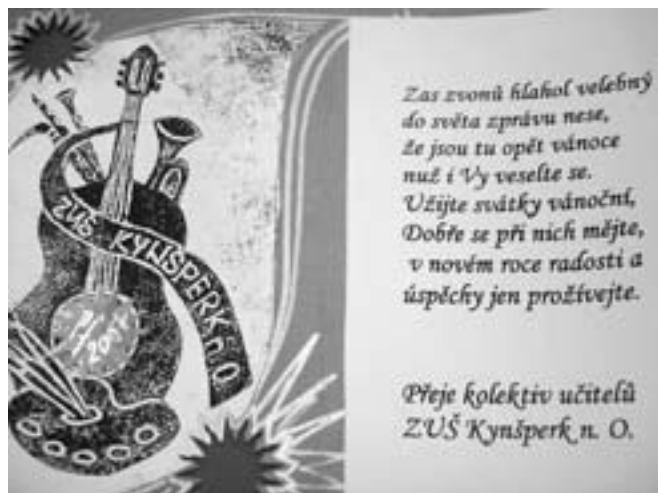 ZUŠ KYNŠPERK n. O.
Zas zvonů hlahol velebný
do světa zprávu nese,
že jsou tu opět vánoce
nuž i Vy veselte se.
Užijte svátky vánoční,
Dobře se při nich mějte,
v novém roce radosti a
úspěchy jen prožívejte.
Přeje kolektiv učitelů
ZUŠ Kynšperk n. O.